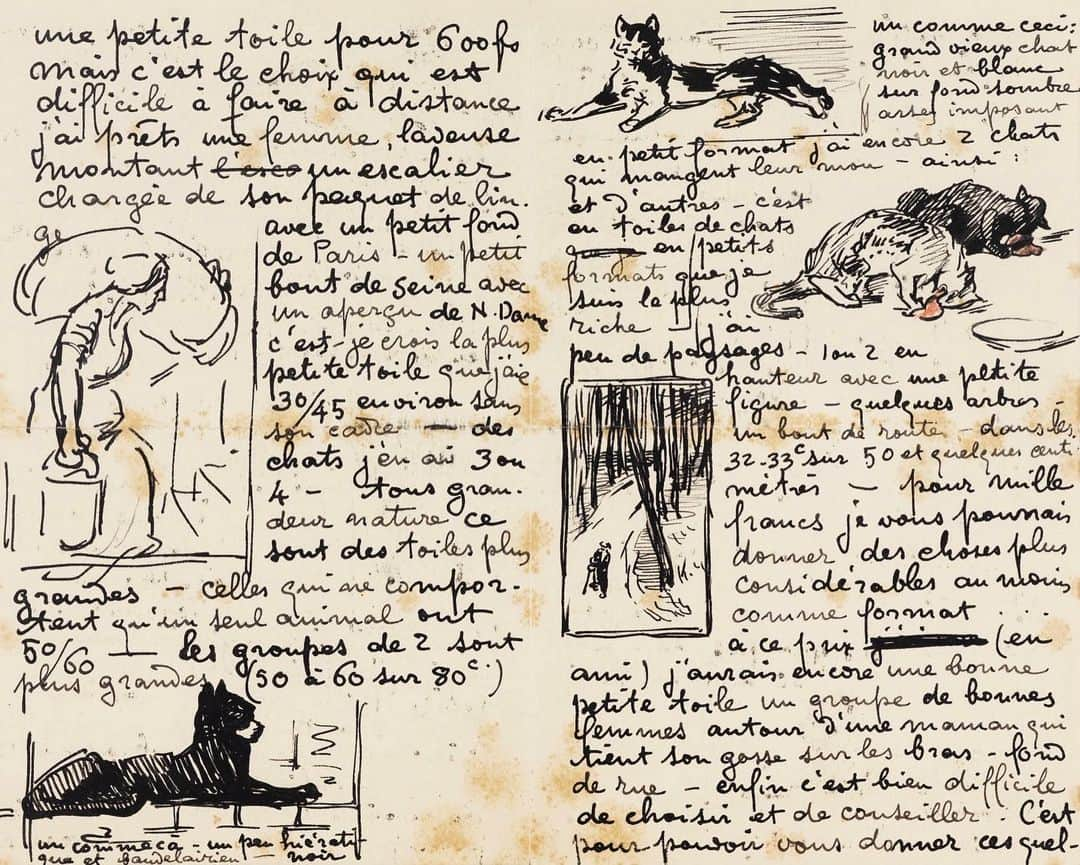 une petite toile pour 600fs
mais c'est le choix qui est
difficile à faire à distance
j'ai prêts une femme, laveuse
montant l'esca un escalier
chargée de son paquet de lin.
ge
avec un petit fond
de Paris - un petit
bout de seine avec
un aperçu de N. Dame
c'est - je crois la plus
petite toile que j'aie
30/45 environ sans
son cadre — des
chats j'en ai 3 ou
4 - tous gran.
deur nature ce
sont des toiles plus
grandes - celles qui ne compor-
tent qu'un seul animal ont
50/60 — les groupes de 2 sont
plus grandes (50 à 60 sur 80 c.)
un comme ça - un peu hiérati-
que et baudelairien - noir
un comme ceci:
grand vieux chat
noir et blanc
sur fond sombre
assez imposant
en petit format j'ai encore 2 chats
qui mangent leur mou - ainsi:
et d'autres - c'est
en toiles de chats
en petits
formats que je
suis le plus
riche j'ai
peu de paysages - 1 ou 2 en
hauteur avec une petite
figure - quelques arbres -
un bout de route - dans les
32-33 c sur 50 et quelques centi-
mètres — pour mille
francs je vous pourrais
donner des choses plus
considérables au moins
comme format
à ce prix (en
ami) j'aurais encore une bonne
petite toile un groupe de bonnes
femmes autour d'une maman qui
tient son gosse sur les bras - fond
de rue - enfin c'est bien difficile
de choisir et de conseiller. C'est
pour pouvoir vous donner ces quel-